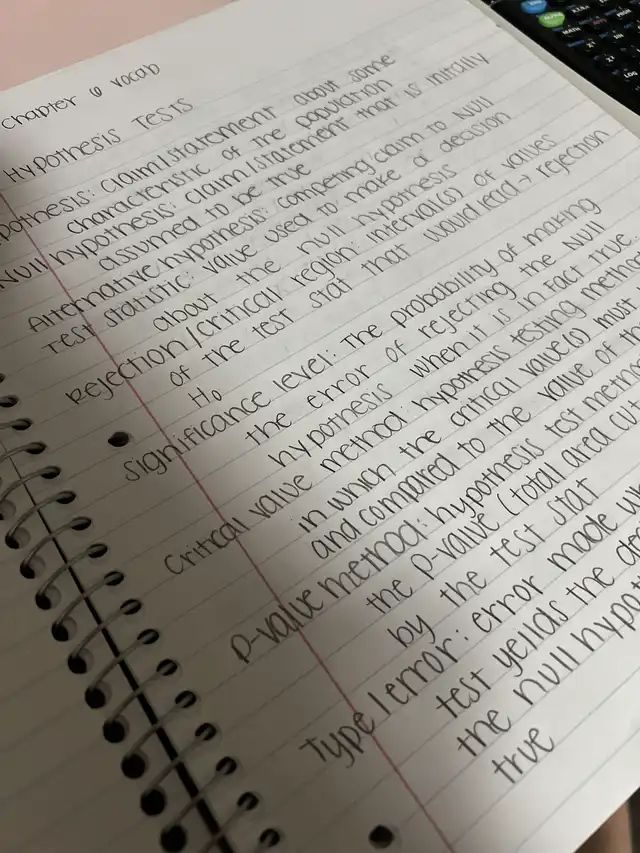 Chapter 6 vocab
Hypothesis Tests
pothesis: claim/statement about some
characteristic of the population
Null hypothesis: claim/statement that is initially
assumed to be true
Alternative hypothesis: competing claim to Null
Test statistic: value used to make a decision
about the null hypothesis
Rejection/critical region: interval(s) of values
of the test stat that would lead → rejection
H₀
Significance level: The probability of making
the error of rejecting the Null
hypothesis when it is in fact true.
Critical value method: hypothesis testing method
in which the critical value(s) must
and compared to the value of the
P-value method: hypothesis test method
the p-value (total area cu
by the test stat
Type 1 error: error made w
test yeilds the de
the null hypo
true